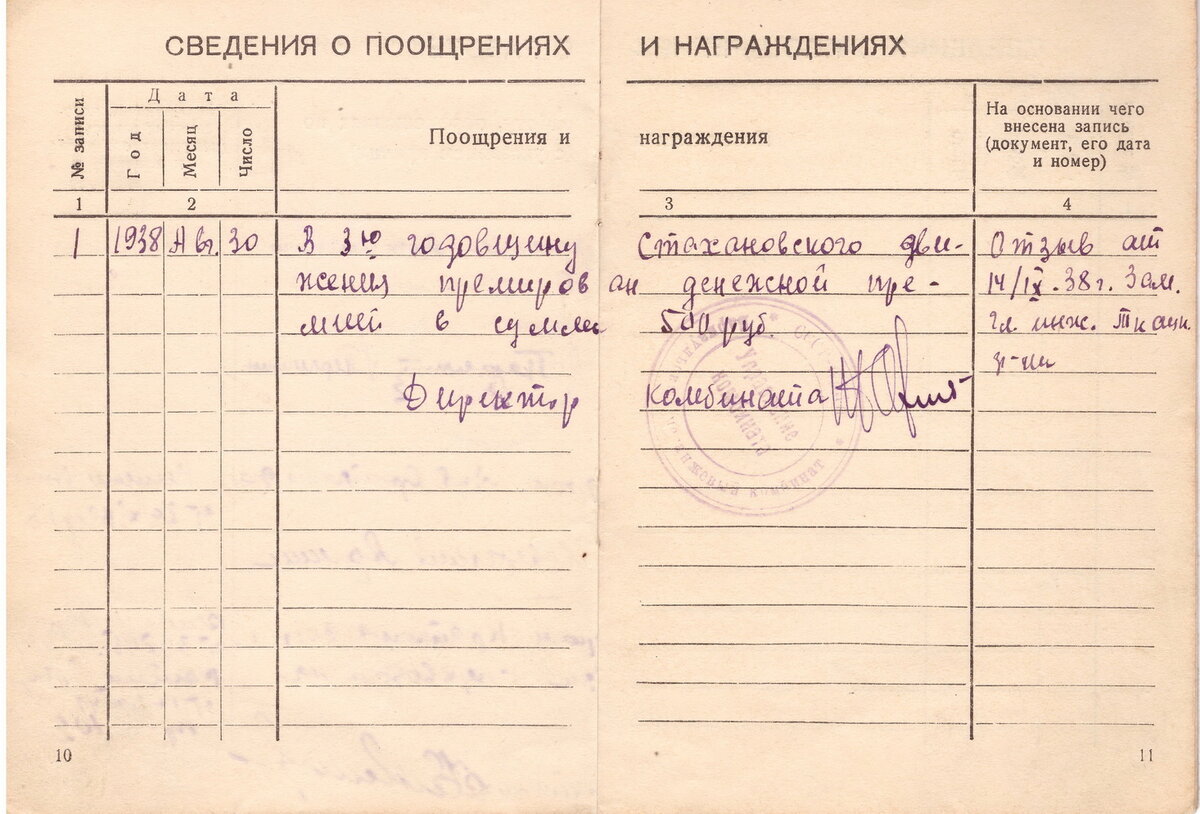 СВЕДЕНИЯ О ПООЩРЕНИЯХ И НАГРАЖДЕНИЯХ
№ записи
Дата
Год
Месяц
Число
Поощрения и награждения
На основании чего
внесена запись
(документ, его дата
и номер)
1 2 3 4
1 1938 Авг. 30 В 3ю годовщину Стахановского дви- Отзыв от
жения премирован денежной пре- 14/IX-38г. Зам.
мией в сумме 500 руб. гл. инж.
Директор Комбината
Управление
комбинат
10
11